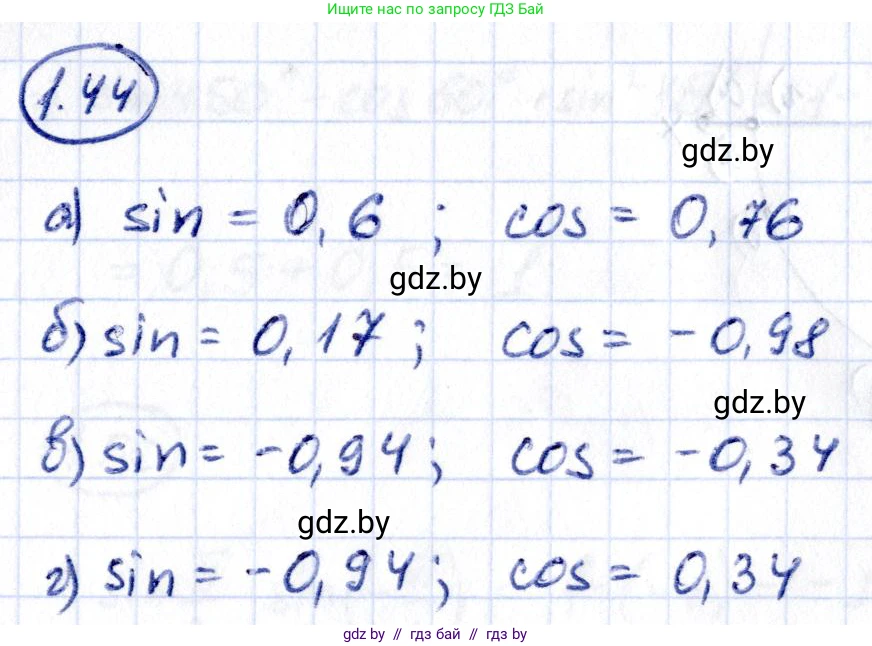 Ищите нас по запросу ГДЗ Бай
1.44
gdz.by
а) sin = 0,6 ; cos = 0,76
gdz.by
б) sin = 0,17 ; cos = -0,98
gdz.by
в) sin = -0,94; cos = -0,34
gdz.by
г) sin = -0,94; cos = 0,34
gdz by // гдз бай // гдз by